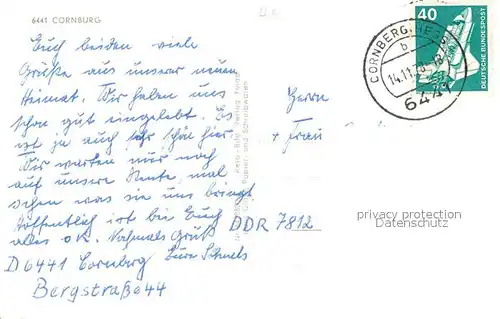 6441 CORNBURG
Euch beiden viele
Grüße aus unserer neuen
Heimat. Wir haben uns
schon gut eingelebt. Es
ist ja auch sehr schön hier.
Wir warten nur noch
auf unsere Rente mal
sehen was sie uns bringt
Hoffentlich ist bei Euch
alles ok. Nochmals Gruß
Eure
D 6441 Cornberg
Bergstraße 44
Herrn
+ Frau
DDR 7812
40
DEUTSCHE BUNDESPOST
CORNBERG
b
14.11.
6441
privacy protection
Datenschutz